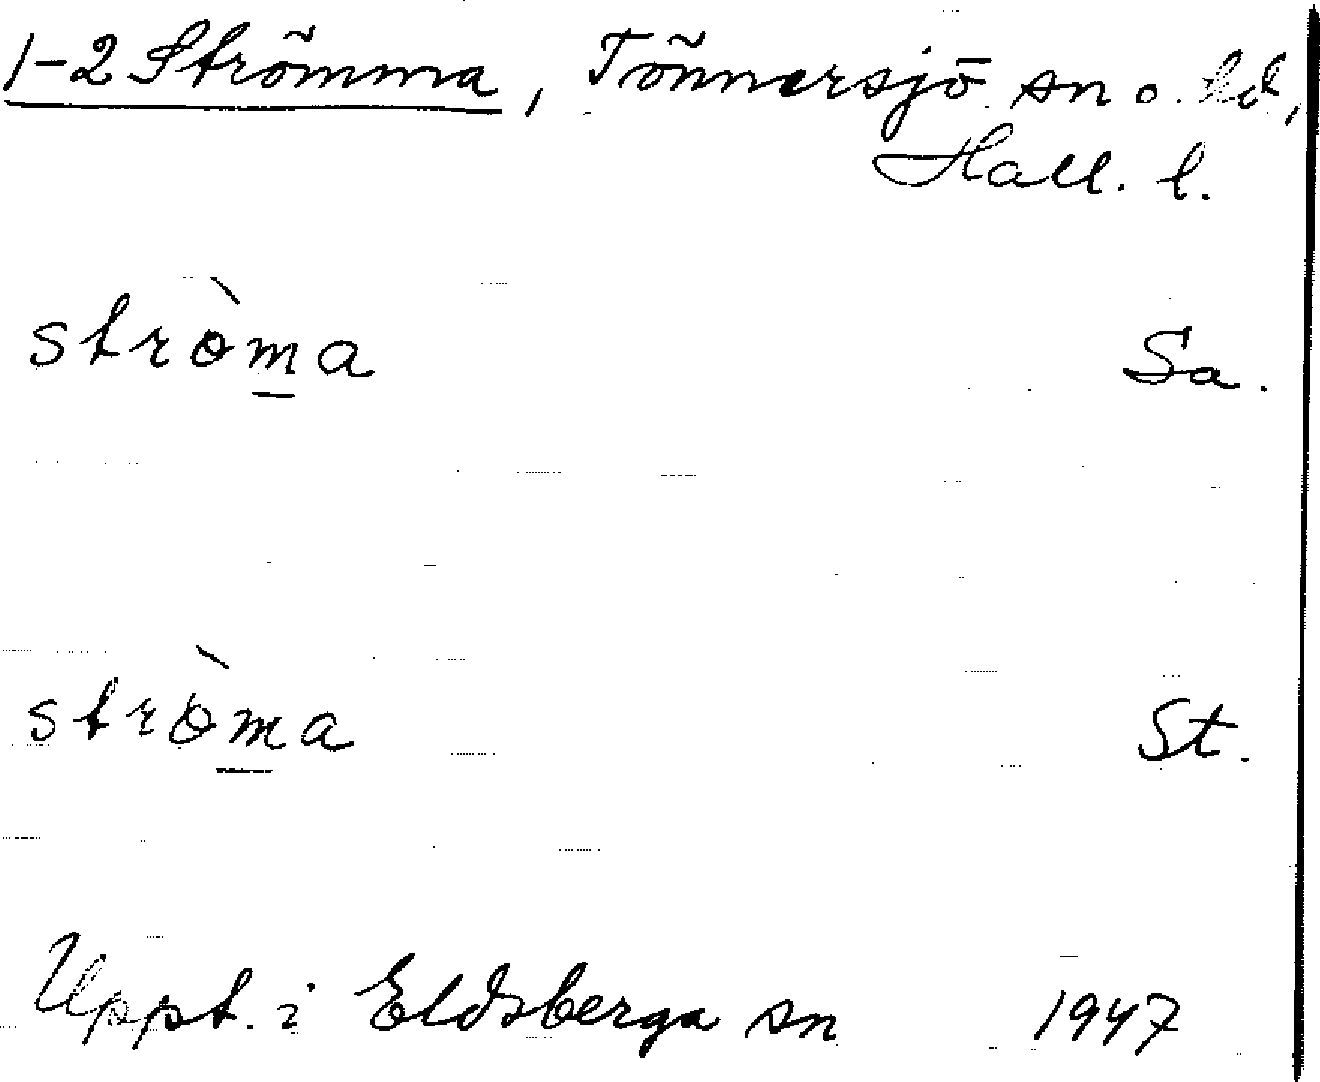 1-2 Strömma, Tönnersjö sn o. hd,
Hall. l.
strò̀m̲a Sa.
strò̀m̲a St.
Uppt. i Eldsberga sn 1947